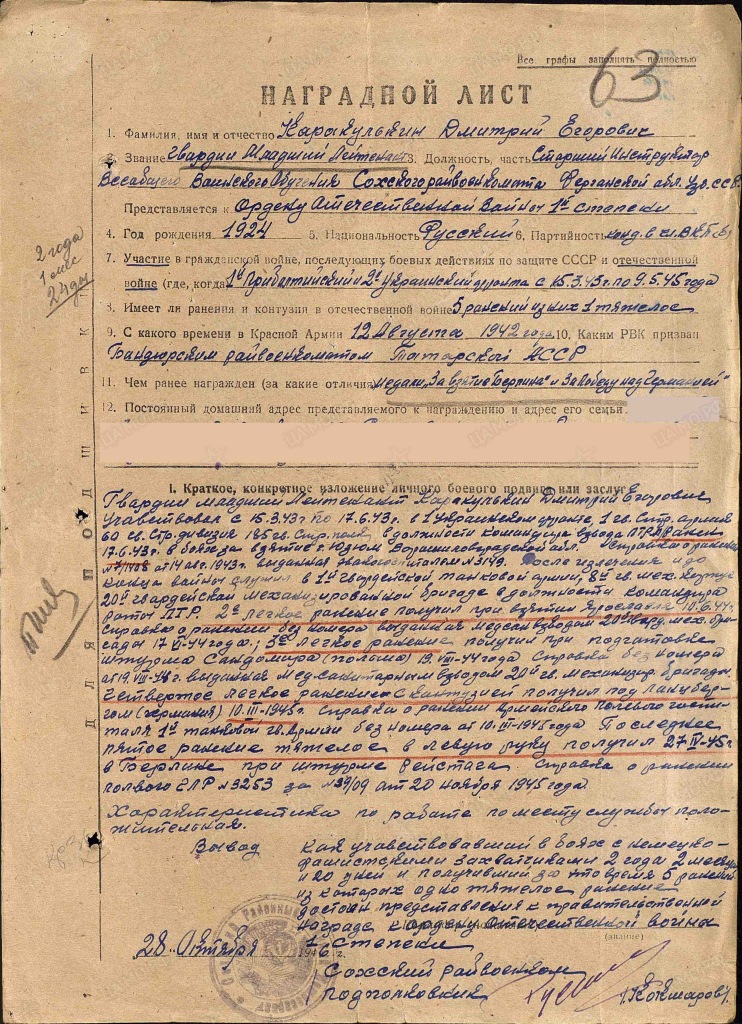 Все графы заполнять полностью
63
НАГРАДНОЙ ЛИСТ
1. Фамилия, имя и отчество Каракулькин Дмитрий Егорович
2. Звание Гвардии Младший Лейтенант 3. Должность, часть Старший Инструктор
Всеобщего Воинского Обучения Сохского райвоенкомата Ферганской обл. Узб. ССР.
Представляется к Ордену Отечественной Войны 1ой степени
4. Год рождения 1924 5. Национальность Русский 6. Партийность канд. в чл. ВКП(б)
7. Участие в гражданской войне, последующих боевых действиях по защите СССР и отечественной
войне (где, когда) 1й Прибалтийский и 2й Украинский фронта с 15.3.43г по 9.5.45 года
8. Имеет ли ранения и контузии в отечественной войне 5 ранений из них 1 тяжелое
9. С какого времени в Красной Армии 12 Августа 1942 года. 10. Каким РВК призван
райвоенкоматом Татарской АССР
11. Чем ранее награжден (за какие отличия) медали „За взятие Берлина" и За Победу над Германией"
12. Постоянный домашний адрес представляемого к награждению и адрес его семьи.
2 года
1 мес
24 дн
ДЛЯ ПОДШИВКИ
I. Краткое, конкретное изложение личного боевого подвига или заслуг
Гвардии Младший Лейтенант Каракулькин Дмитрий Егорович
Участвовал с 15.3.43г по 17.6.43г. в 1 Украинском фронте, 1 гв. Стр. армия
60 гв. Стр. дивизия 185 гв. Стр. полк в должности командира взвода ПТР. Ранен
17.6.43г. в боях за взятие г. Изюм Ворошиловоградской обл. Справка о ранении
от 14 авг. 1943г. выданная эвакогоспиталем №3149. После излечения и до
конца войны служил в 1ой гвардейской танковой армии, 8ой гв. мех. корпус
20ой гвардейской Механизированной бригаде в должности командира
роты ПТР. 2ое легкое ранение получил при взятии Ярославля 10.6.44г.
Справка о ранении без номера выданная медсанвзводом 20ой гвард. мех. бри-
гады 17 VI-44 года.; 3ее Легкое ранение получил при подготовке
штурма Сандомира (Польша) 19.VIII-44 года Справка без номера
от 19.VIII-44г. выданная Мед-санитарным взводом 20ой гв. механизир. бригады.
Четвертое легкое ранение с контузией получил под Ланцбер-
гом (Германия) 10.III-1945г. Справка о ранении Армейского полевого госпи-
таля 1ой танковой гв. Армии без номера от 10.III-1945 года Последнее
пятое ранение тяжелое в левую руку получил 27.IV-45г.
в Берлине при штурме рейстага Справка о ранении
ЭЛР №3253 за №39/09 от 20 ноября 1945 года.
Характеристика по работе по месту службы поло-
жительная.
Вывод Как участвовавший в боях с немецко-
фашистскими захватчиками 2 года 2 месяца
и 20 дней и получивший за это время 5 ранений
из которых одно тяжелое ранение
достоин представления к правительственной
награде к Ордену Отечественной война
1ой Степени
28 Октября 1946 г.
(звание)
Сохский райвоенком
подполковник